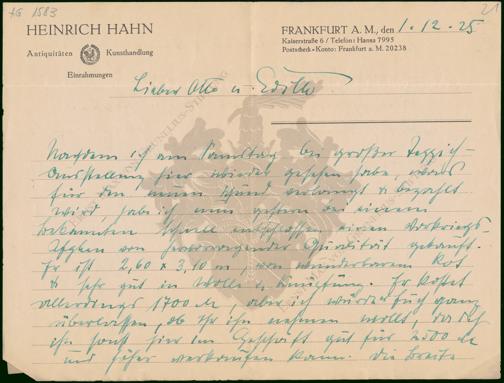 FG 1583
21
HEINRICH HAHN
Antiquitäten Kunsthandlung
Einrahmungen
FRANKFURT A. M., den 1.12.25
Kaiserstraße 6 / Telefon: Hansa 7995
Postscheck-Konto: Frankfurt a. M. 20238
Lieber Otto u. Edith
Nachdem ich am Samstag bei großer Teppich-
Ausstellung hier wieder gesehen habe, was
für den neuen Schund verlangt & bezahlt
wird, hab ich nun gestern bei einem
Bekannten schnell entschlossen einen Vorkriegs-
Afghan von hervorragender Qualität gekauft.
Er ist 2,60 x 3,10 m von wunderbarem Rot
& sehr gut in Wolle & Knüpfung. Er kostet
allerdings 1700 M aber ich würde Euch ganz
überlassen, ob Ihr ihn nehmen wollt, da ich
ihn sonst hier im Geschäft gut für 2000 M
und höher verkaufen kann. Die Breite